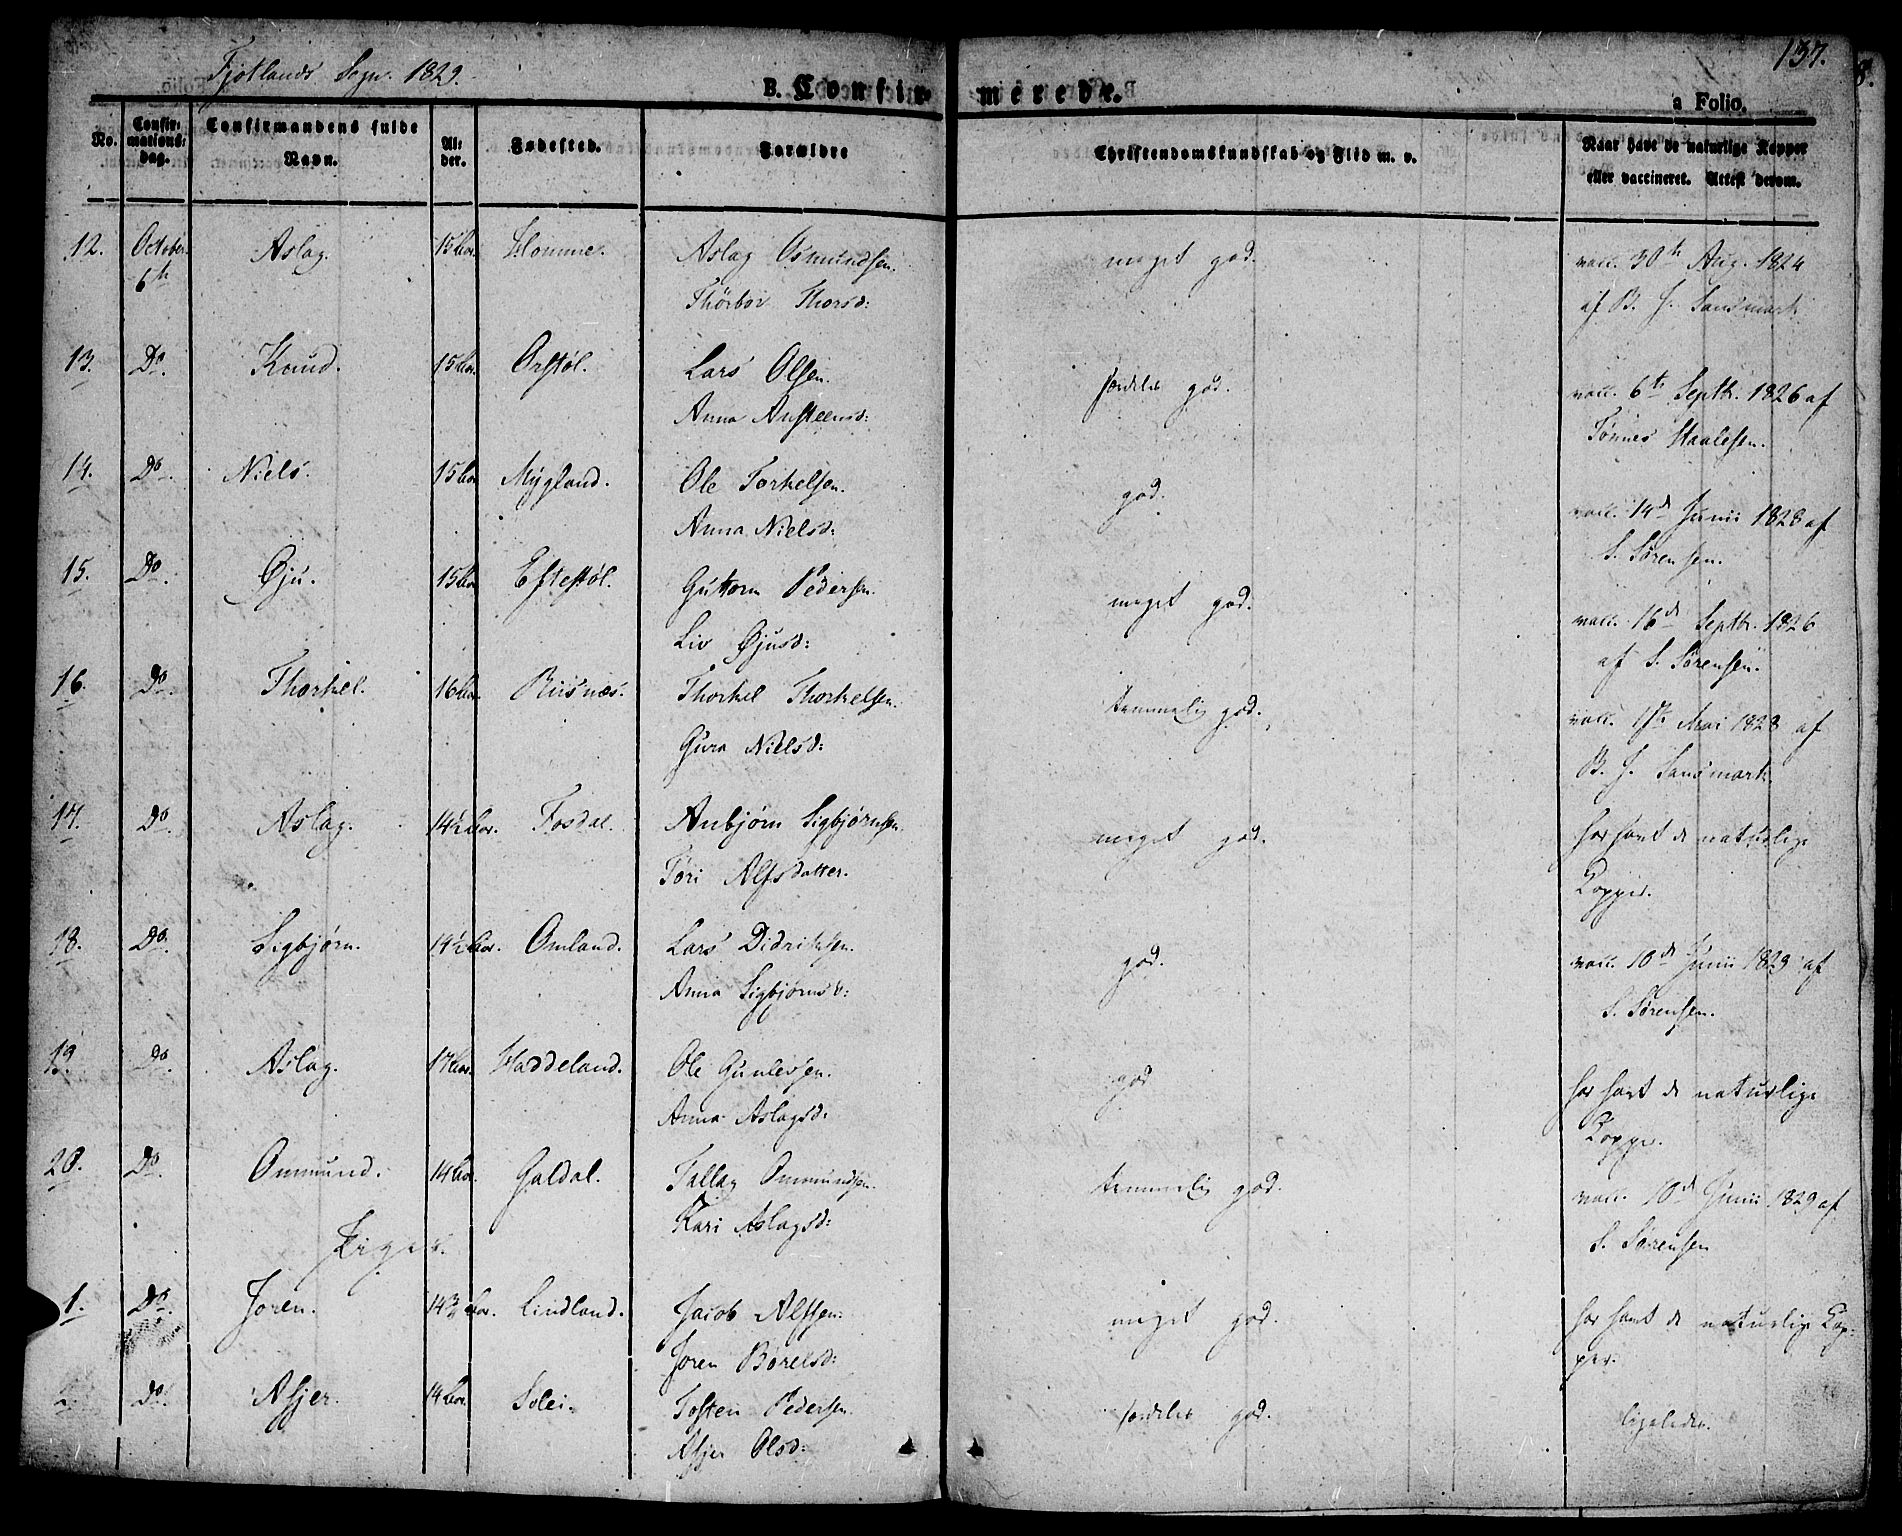 137.
Fjotlands Sogn. 1829.
B. Confirmerede.
a Folio.
No. Confirmations-dag. Confirmandens fulde Navn. Alder. Fødested. Forældre Christendomskundskab og Flid m. v. Naar havt de naturlige Kopper eller vaccineret. Attest derom.
12. October 6th Aslag. 15 Aar. Homme. Aslag Osmundsen. meget god. vacc. 30th Aug. 1824
Thørbor Thorsd: af B. J. Sandsmark
13. Do. Knud. 15 Aar. Orstøl. Lars Olsen. særdeles god. vacc. 6th Septbr. 1826 af
Anna Ansteensd: Tønnes Staalesen.
14. Do. Niels. 15 Aar Mygland. Ole Torkelsen. god. vacc. 14d Junii 1828 af
Anna Nielsd: S. Sørensen.
15. Do. Øju. 15 Aar Eftestøl. Guttorm Pedersen. meget god. vacc. 16d Septbr. 1826
Liv Øjusd: af S. Sørensen.
16. Do. Thorkel. 16 Aar. Risnæs. Thorkel Thorkelsen. temmelig god. vacc. 17th Mai 1828 af
Gura Nielsd: B. J. Sandsmark
17. Do. Aslag. 14½ Aar. Fosdal. Anbjørn Sigbjørnsen. meget god. har havt de naturlige
Tori Alfsdatter. Kopper.
18. Do. Sigbjørn. 14½ Aar. Omland. Lars Didriksen. god. vacc. 10d Junii 1829 af
Anna Sigbjørnsd: S. Sørensen.
19. Do. Aslag. 17 Aar. Haddeland. Ole Gunlefsen. god har havt de naturlige
Anna Aslagsd: Kopper.
20. Do. Ommund. 14 Aar. Galdal. Tallag Ommundsen. temmelig god. vacc. 10d Junii 1829 af
Kari Aslagsd: S. Sørensen
Piger.
1. Do. Joren. 14¾ Aar. Lindland. Jacob Alfsen. meget god. har havt de naturlige Kop-
Joren Børelsd: per.
2. Do. Asjer. 14 Aar. Solei. Tosten Pedersen. særdeles god. ligeledes.
Asjer Olsd: